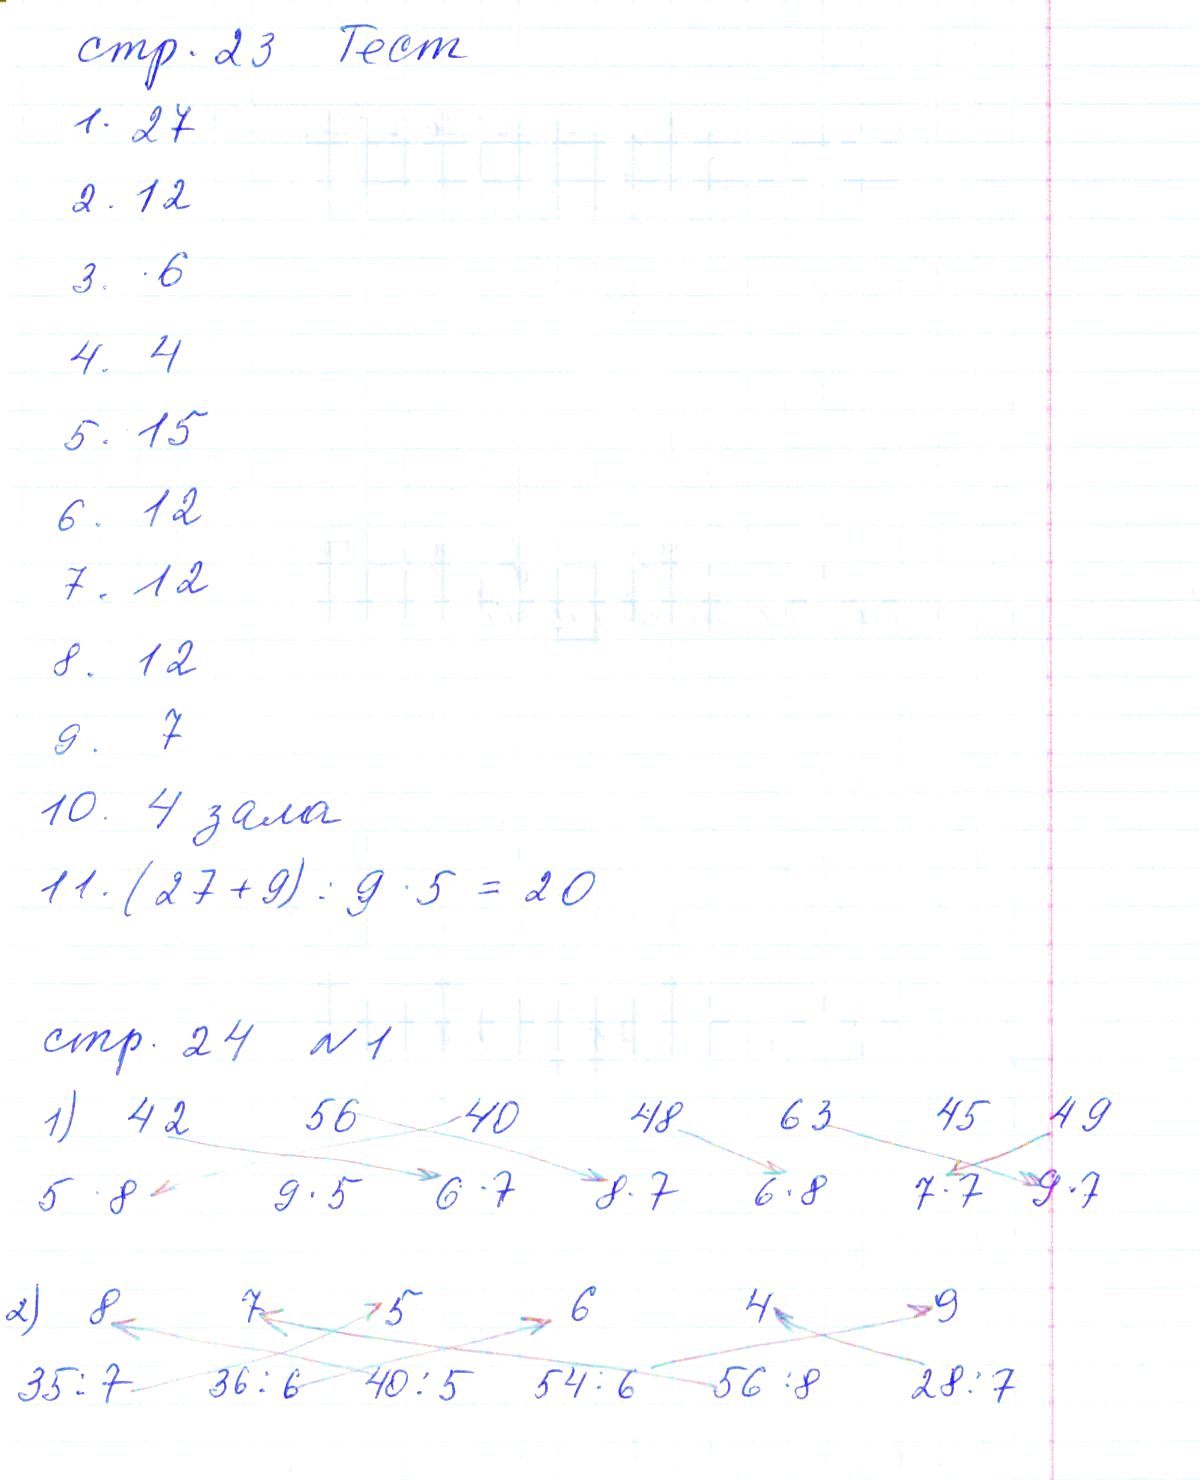 стр. 23 Тест
1. 27
2. 12
3. 6
4. 4
5. 15
6. 12
7. 12
8. 12
9. 7
10. 4 зала
11. (27+9) : 9 · 5 = 20
стр. 24 №1
1) 42 56 40 48 63 45 49
5 · 8 9 · 5 6 · 7 8 · 7 6 · 8 7 · 7 9 · 7
2) 8 7 5 6 4 9
35:7 36:6 40:5 54:6 56:8 28:7